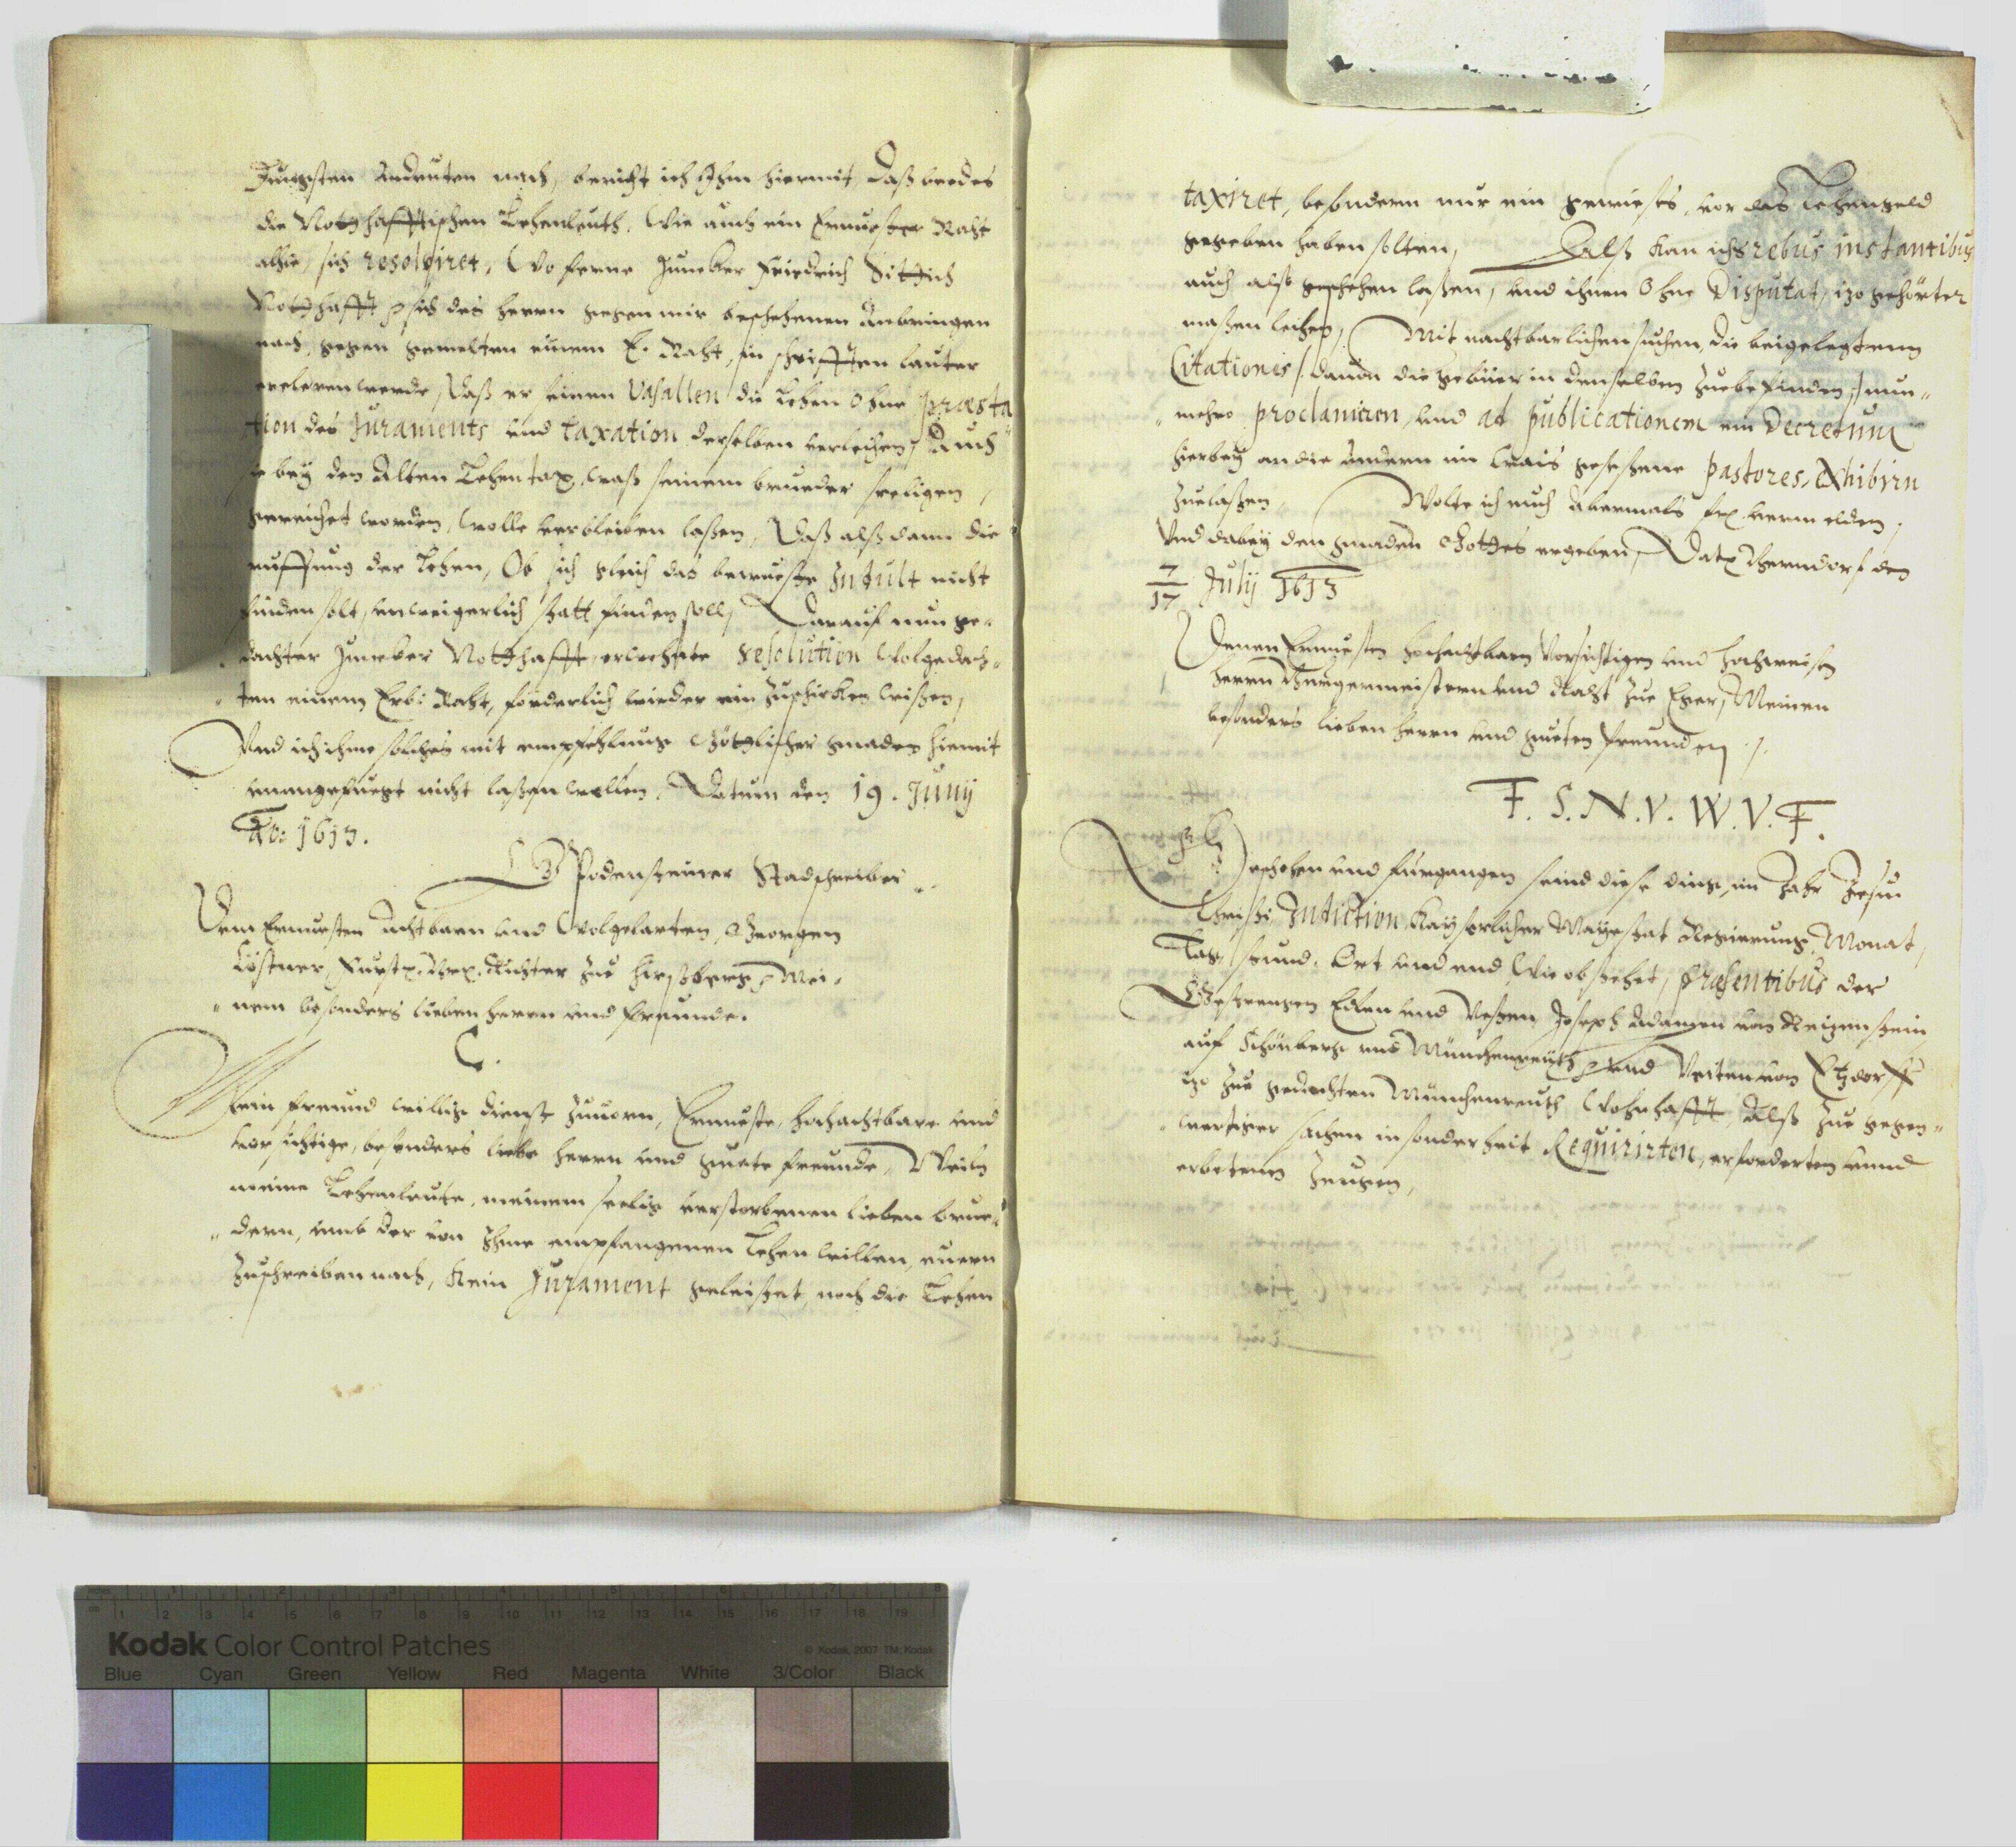 Jüngsten andeuten nach, bericht ich Ihm hiermit, daß beedes
die Notthafftischen Lehenleuth, Wie auch ein Ernvester Raht
alhie, sich resolviret, Wo ferne Juncker Friedrich Sittich
Notthafft sich des herrn gegen mir beschehenen Anbringen
nach, gegen gemelten einem E. Raht, in schrifften lauter
ercleren werde, Daß er seinen Vasallen die Lehen Ohne præsta
tion des Juraments und taxation derselben verleihen, Auch
es bey dem Alten Lehentax, waß seinem brueder seeligen
gereichet worden, Wolle verbleiben laßen, Daß alßdann die
ruffung der Lehen, Ob sich gleich das bewuste Indult nicht
finden solt, unweigerlich statt finden soll, Darauf nun ge-
dachter Juncker Notthafft, erlechste resolution Wolgedach-
ten einem Erb: Raht, förderlich wieder ein zuschicken wißen,
Und ich ihme solches mit empfehlung Göttlicher gnaden hiemit
unangefuegt nicht laßen wollen. Datum den 19. Juny
Ao: 1613.
Podensteiner Stadschreiber
Dem Ernvesten Achtbarn und Wolgelarten, Georgen
Löstner, Richter zue Hirschberg, Mei-
nem besonders lieben herrn und freunde.
C.
Mein freund willig dienst zuvorn, Ernveste, hochachtbare und
vorsichtige, besonders liebe herrn und guete freunde, Weiln
meine Lehenleute, meinem seelig verstorbenen lieben brue-
dern, umb der von Ihme empfangenen Lehen willen, euern
zuschreiben nach, Kein Jurament geleistet, noch die Lehen
taxiret, besondern nur ein gewießes, vor das Lehengeld
gegeben haben solten, Alß kan ichs rebus instantibus
auch also geschehen laßen, und ihnen Ohne Disputat, izo gehörter
maßen leihen, Mit nachtbarlichen suchen, die beigelegten
Citationes /: davon die gebüer in denselben zuebefinden :/ nun-
mehro proclamiren, und ad publicationem ein Decretum
hierbey an die andern im Crais geseßene Pastores, Exhibirn
zuelaßen, Wolte ich euch Abermals vermelden,
Und dabey den gnaden Gottes ergeben, Dat: Wherndorf den
7/17 July 1613
Denen Ernvesten hochachtbarn Vorsichtigen und hochweisen
herrn Burgermeistern und Raht zue Eger, Meinen
besonders lieben herrn und gueten freunden ./.
F. S. N. V. W. V. F.
Geschehen und fürgangen seind diese ding, im Jahr Jesu
Christi, Indiction, Kayserlicher Mayestat Regierung, Monat,
Tag, stund, Ort und end Wie obstehet, præsentibus der
Gestrengen Edlen und Vesten Joseph Adamen von Reizenstein
auf Schönberg und Münchenreuth, und Veiten von Etzdorff
izo zue gedachten Münchenreuth Wohnhafft, Alß zue gegen-
wertiger sachen in sonderheit Requirirten, erforderten unnd
erbetenen Zeugen,
Kodak Color Control Patches
© Kodak, 2007 TM: Kodak
Blue Cyan Green Yellow Red Magenta White 3/Color Black